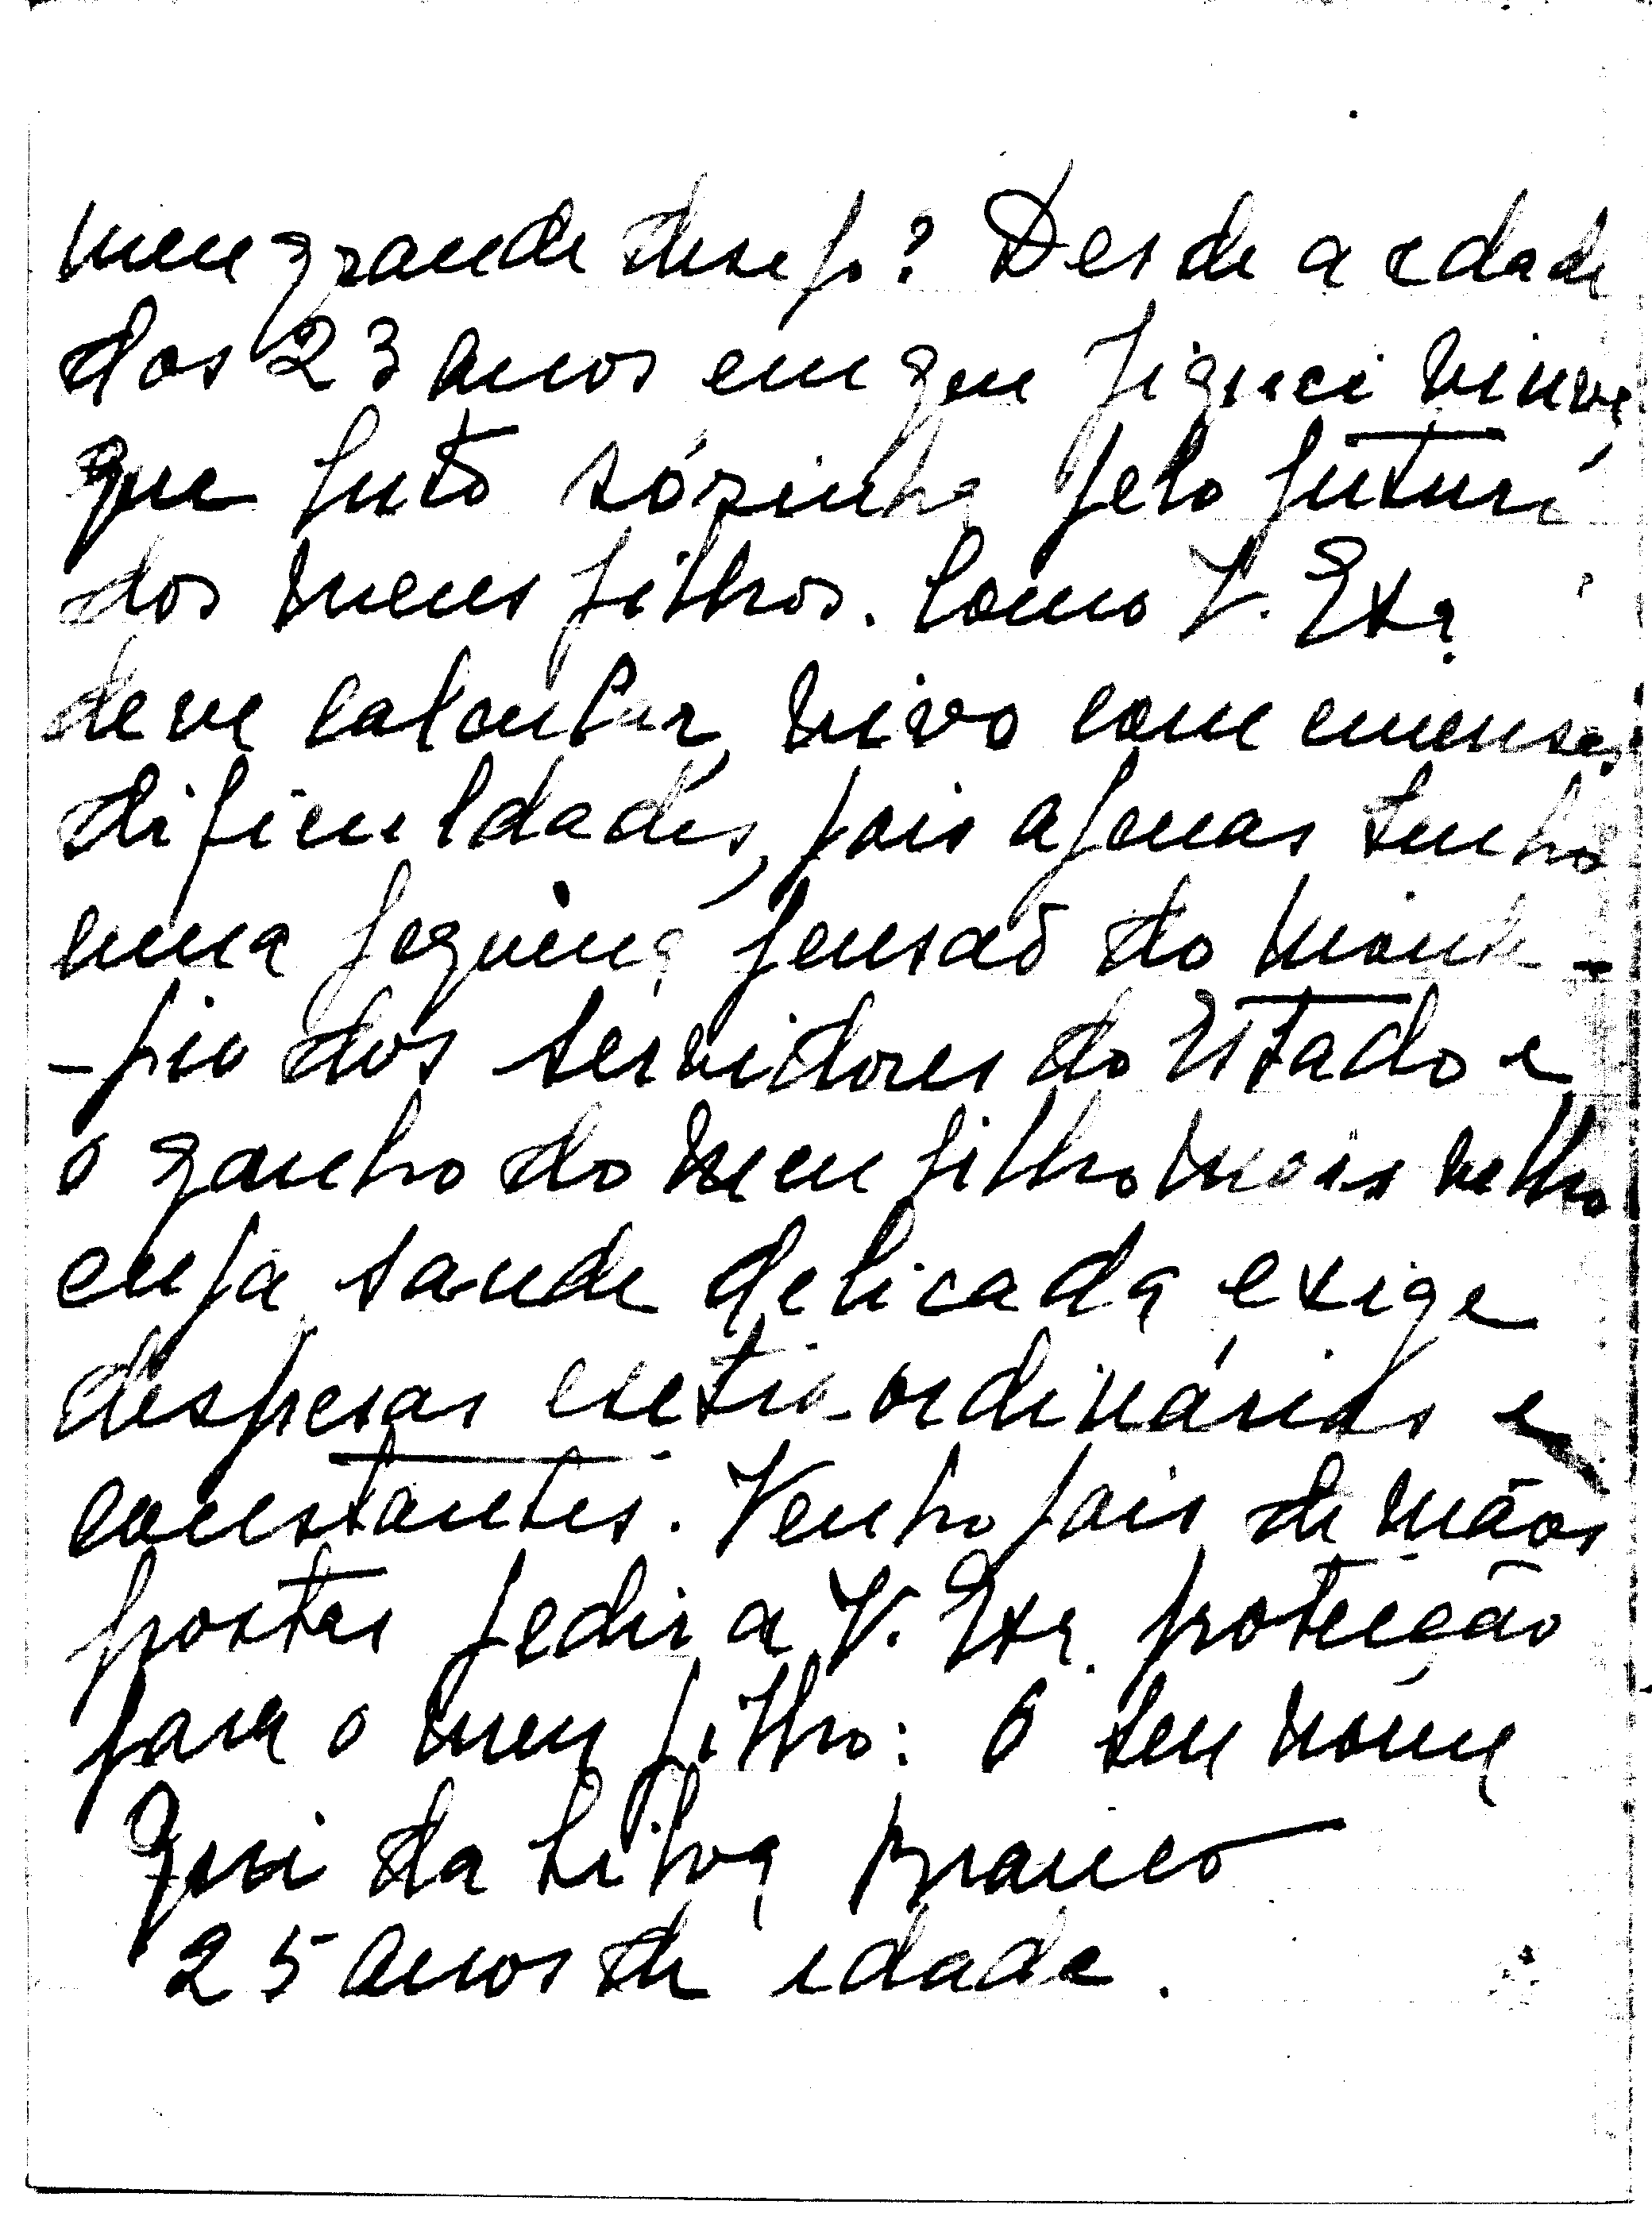 meu grande desejo? Desde a edade
dos 23 anos em que fiquei viuva
que luto sózinha pelo futuro
dos meus filhos. Como V. Exa.
deve calcular, vivo com emensas
dificuldades, pois apenas tenho
uma pequena pensaõ do Monte-
-pio dos Servidores do Estado e
o ganho do meu filho mais velho
cuja saude delicada exige
despesas extra-ordinárias e
constantes. Venho pois de mãos
postas pedir a V. Exa. protecção
para o meu filho: O seu nome
da Silva Branco
25 anos de idade.